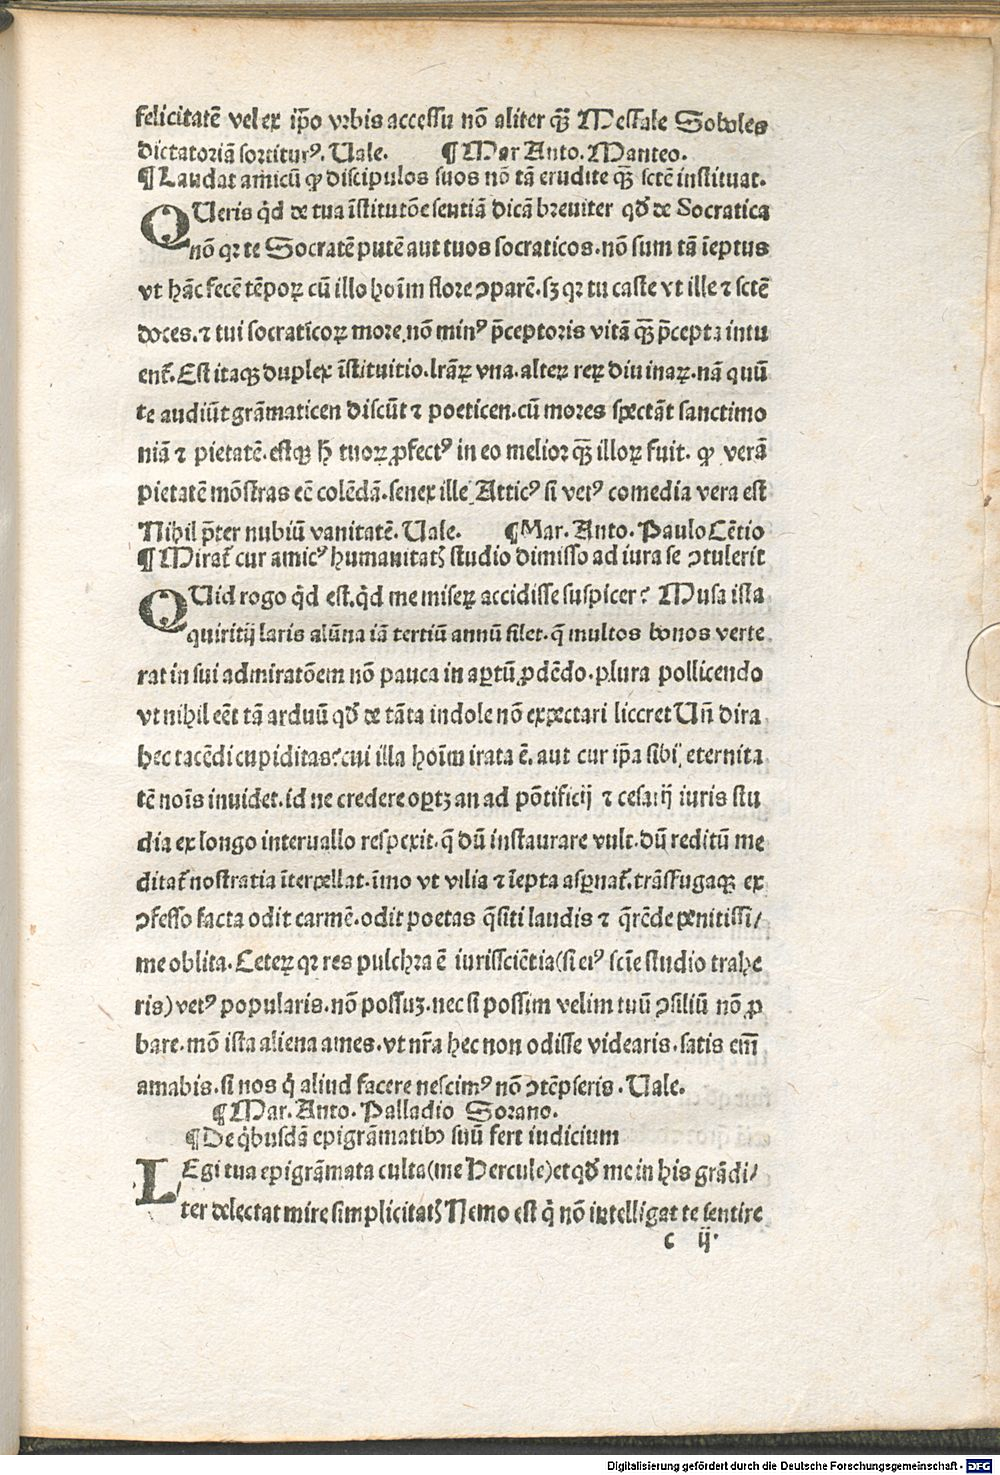 felicitatē vel ex ip̄o vrbis accessu nō aliter q̄ꝫ Messale Soboles
dictatoriā sortiturꝰ. Uale. ¶ Mar Anto. Manteo.
¶ Laudat amicū ꝙ discipulos suos nō tā erudite q̄ꝫ sctē instituat.
QUeris q̇d de tua īstitutōe sentiā dicā breuiter qď de Socratica
nō qꝛ te Socratē putē aut tuos socraticos. nō sum tā īeptus
vt hāc fecē tēpoꝝ cū illo hoīm flore ꝯparē. sꝫ qꝛ tu caste vt ille ⁊ sctē
doces. ⁊ tui socraticoꝝ more. nō minꝰ p̄ceptoris vitā q̄ꝫ p̄cepta intu
ent̄. Est itaqꝫ duplex īstituitio. lr̄aꝝ vna. alter reꝝ diuinaꝝ. nā quū
te audiūt grāmaticen discūt ⁊ poeticen. cū mores spectāt sanctimo
niā ⁊ pietatē. estqꝫ h̄ tuoꝝ ꝓfectꝰ in eo melior q̄ꝫ illoꝝ fuit. ꝙ verā
pietatē mōstras eē colēdā. senex ille Atticꝰ si vetꝰ comedia vera est
Nihil p̄ter nubiū vanitatē. Uale. ¶ Mar. Anto. Paulo Cētio
¶ Mirat̄ cur amicꝰ humanitatꝭ studio dimisso ad iura se ꝯtulerit
QUid rogo q̇d est. q̇d me miseꝝ accidisse suspicer? Musa ista
quiritij laris alūna iā tertiū annū silet. q̄ multos bonos verte
rat in sui admiratōem nō pauca in aꝑtū ꝓdēdo. plura pollicendo
vt nihil eēt tā arduū qď de tāta indole nō expectari liceret Un̄ dira
hec tacēdi cupiditas? cui illa hoīm irata ē. aut cur ip̄a sibi eternita
tē noīs inuidet. id ne credere oꝑtꝫ an ad pōtificij ⁊ cesarij iuris stu
dia ex longo interuallo respexit. q̄ dū instaurare vult. dū reditū me
ditat̄ nostratia īterpellat. īmo vt vilia ⁊ īepta asꝑnat̄. trāsfugaqꝫ ex
ꝯfesso facta odit carmē. odit poetas q̄siti laudis ⁊ q̄rēde penitissi/
me oblita. Ceteꝝ qꝛ res pulchra ē iurisciētia(si eiꝰ scīe studio trahe
ris) vetꝰ popularis. nō possuꝫ. nec si possim velim tuū ꝯsiliū nō ꝓ
bare. mō ista aliena ames. vt nr̄a hec non odisse videaris. satis em̄
amabis. si nos q̇ aliud facere nescimꝰ nō ꝯtēpseris. Uale.
¶ Mar. Anto. Palladio Sorano.
¶ De q̇busdā epigrāmatibꝰ suū fert iudicium
LEgi tua epigrāmata culta(me Hercule)et qď me in his grādi/
ter delectat mire simplicitatꝭ Nemo est q̇ nō intelligat te sentire
c ij.
Digitalisierung gefördert durch die Deutsche Forschungsgemeinschaft - DFG